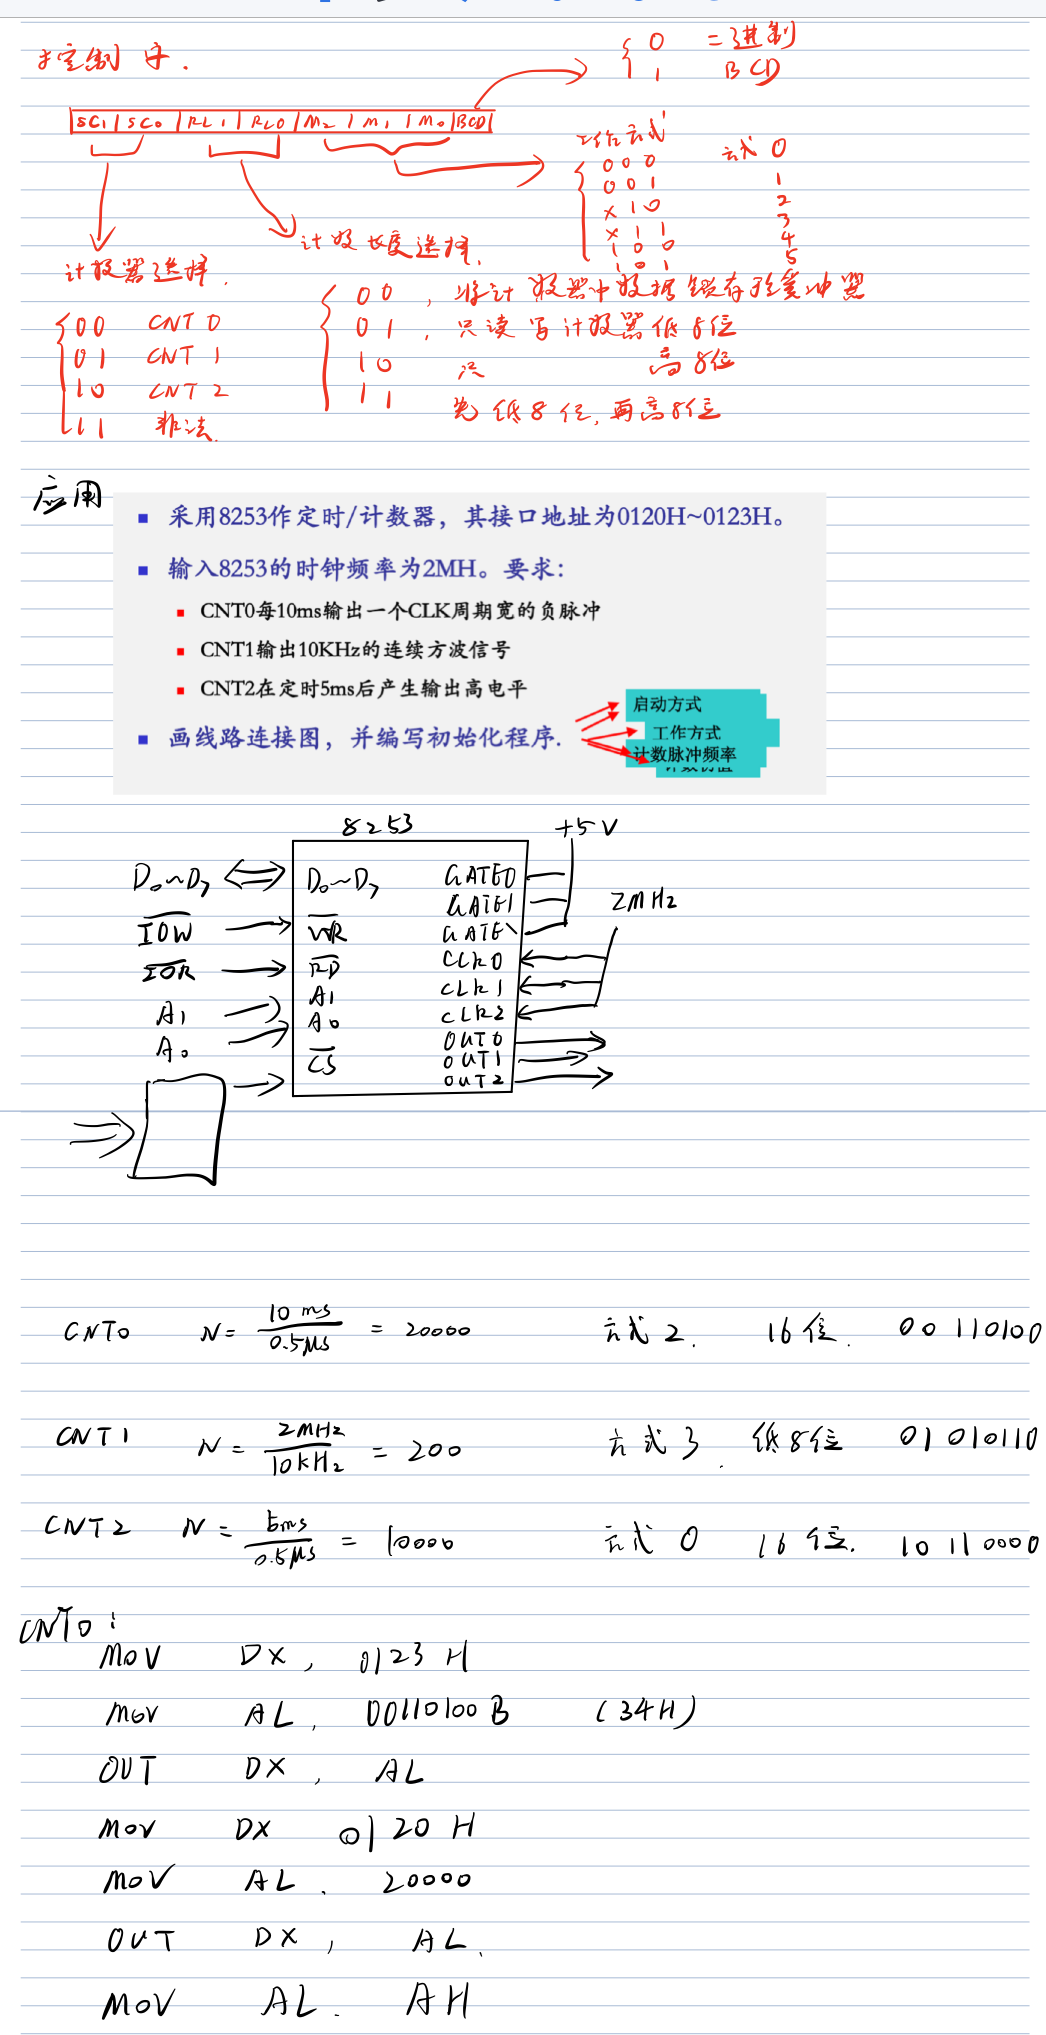 控制字.
{ 0 二进制
1 BCD
|SC1|SC0|RL1|RL0|M2|M1|M0|BCD|
工作方式 方式 0
000
001 1
×10 2
×11 3
100 4
101 5
计数器选择.
00 CNT 0
01 CNT 1
10 CNT 2
11 非法.
计数长度选择.
00, 将计数器中数据锁存于缓冲器
01, 只读写计数器低8位
10 只 高8位
11 先低8位, 再高8位
应用
采用8253作定时/计数器，其接口地址为0120H~0123H。
输入8253的时钟频率为2MH。要求：
CNT0每10ms输出一个CLK周期宽的负脉冲
CNT1输出10KHz的连续方波信号
CNT2在定时5ms后产生输出高电平
画线路连接图，并编写初始化程序.
启动方式
工作方式
计数脉冲频率
计数初值
8253 +5V
D0~D7 D0~D7 GATE0
GATE1 2MHz
IOW WR GATE
IOR RD CLK0
A1 A1 CLK1
A0 A0 CLK2
OUT0
CS OUT1
OUT2
CNT0 N= 10ms/0.5μs = 20000 方式2. 16位. 00110100
CNT1 N = 2MHz/10KHz = 200 方式3. 低8位 01010110
CNT2 N = 5ms/0.5μs = 10000 方式0 16位. 10110000
CNT0:
MOV DX, 0123H
MOV AL, 00110100B (34H)
OUT DX, AL
MOV DX 0120H
MOV AL. 20000
OUT DX, AL.
MOV AL. AH